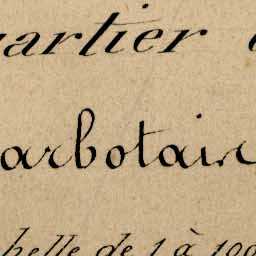 uartier
arbotain
helle de 1 à 100